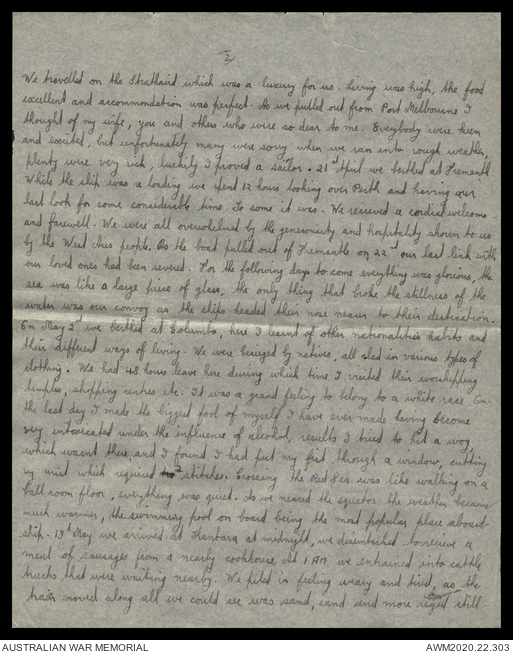 2
We travelled on the Strathaird which was a luxury for us. Living was high, the food
excellent and accommodation was perfect. As we pulled out from Port Melbourne I
thought of my wife, you and others who were so dear to me. Everybody were keen
and excited, but unfortunately many were sorry when we ran into rough weather,
plenty were very sick, luckily I proved a sailor. 21st April we berthed at Fremantle
While the ship was re loading we spent 12 hours looking over Perth and having our
last look for some considerable time. To some it was. We received a cordial welcome
and farewell. We were all overwhelmed by the generousity and hospitality shown to us
by the West Aus people. As the boat pulled out of Fremantle on 22nd our last link with
our loved ones had been severed. For the following days to come everything was glorious, the
sea was like a large piece of glass, the only thing that broke the stillness of the
water was our convoy as the ships headed their nose nearer to their destination.
On May 2nd we berthed at Colombo, here I learnt of other nationalities habits and
their different ways of living. We were beseiged by natives, all clad in various types of
clothing. We had 48 hours leave here during which time I visited their worshipping
temples, shopping centres etc. It was a grand feeling to belong to a white race. On
the last day I made the biggest fool of myself I have ever made having become
very intoxicated under the influence of alcohol, results I tried to hit a wog
which wasnt there and I found I had put my fist through a window, cutting
my wrist which required 2 stitches. Crossing the Red Sea was like walking on a
ball room floor, everything was quiet. As we neared the equator the weather became
much warmer, the swimming pool on board being the most popular place aboard
ship. 13th May we arrived at Kantara at midnight, we disembarked to recieve a
meal of sausages from a nearby cookhouse. At 1 AM we entrained into cattle
trucks that were waiting nearby. We piled in feeling weary and tired, as the
train moved along all we could see was sand, sand and more still
AUSTRALIAN WAR MEMORIAL
AWM2020.22.303